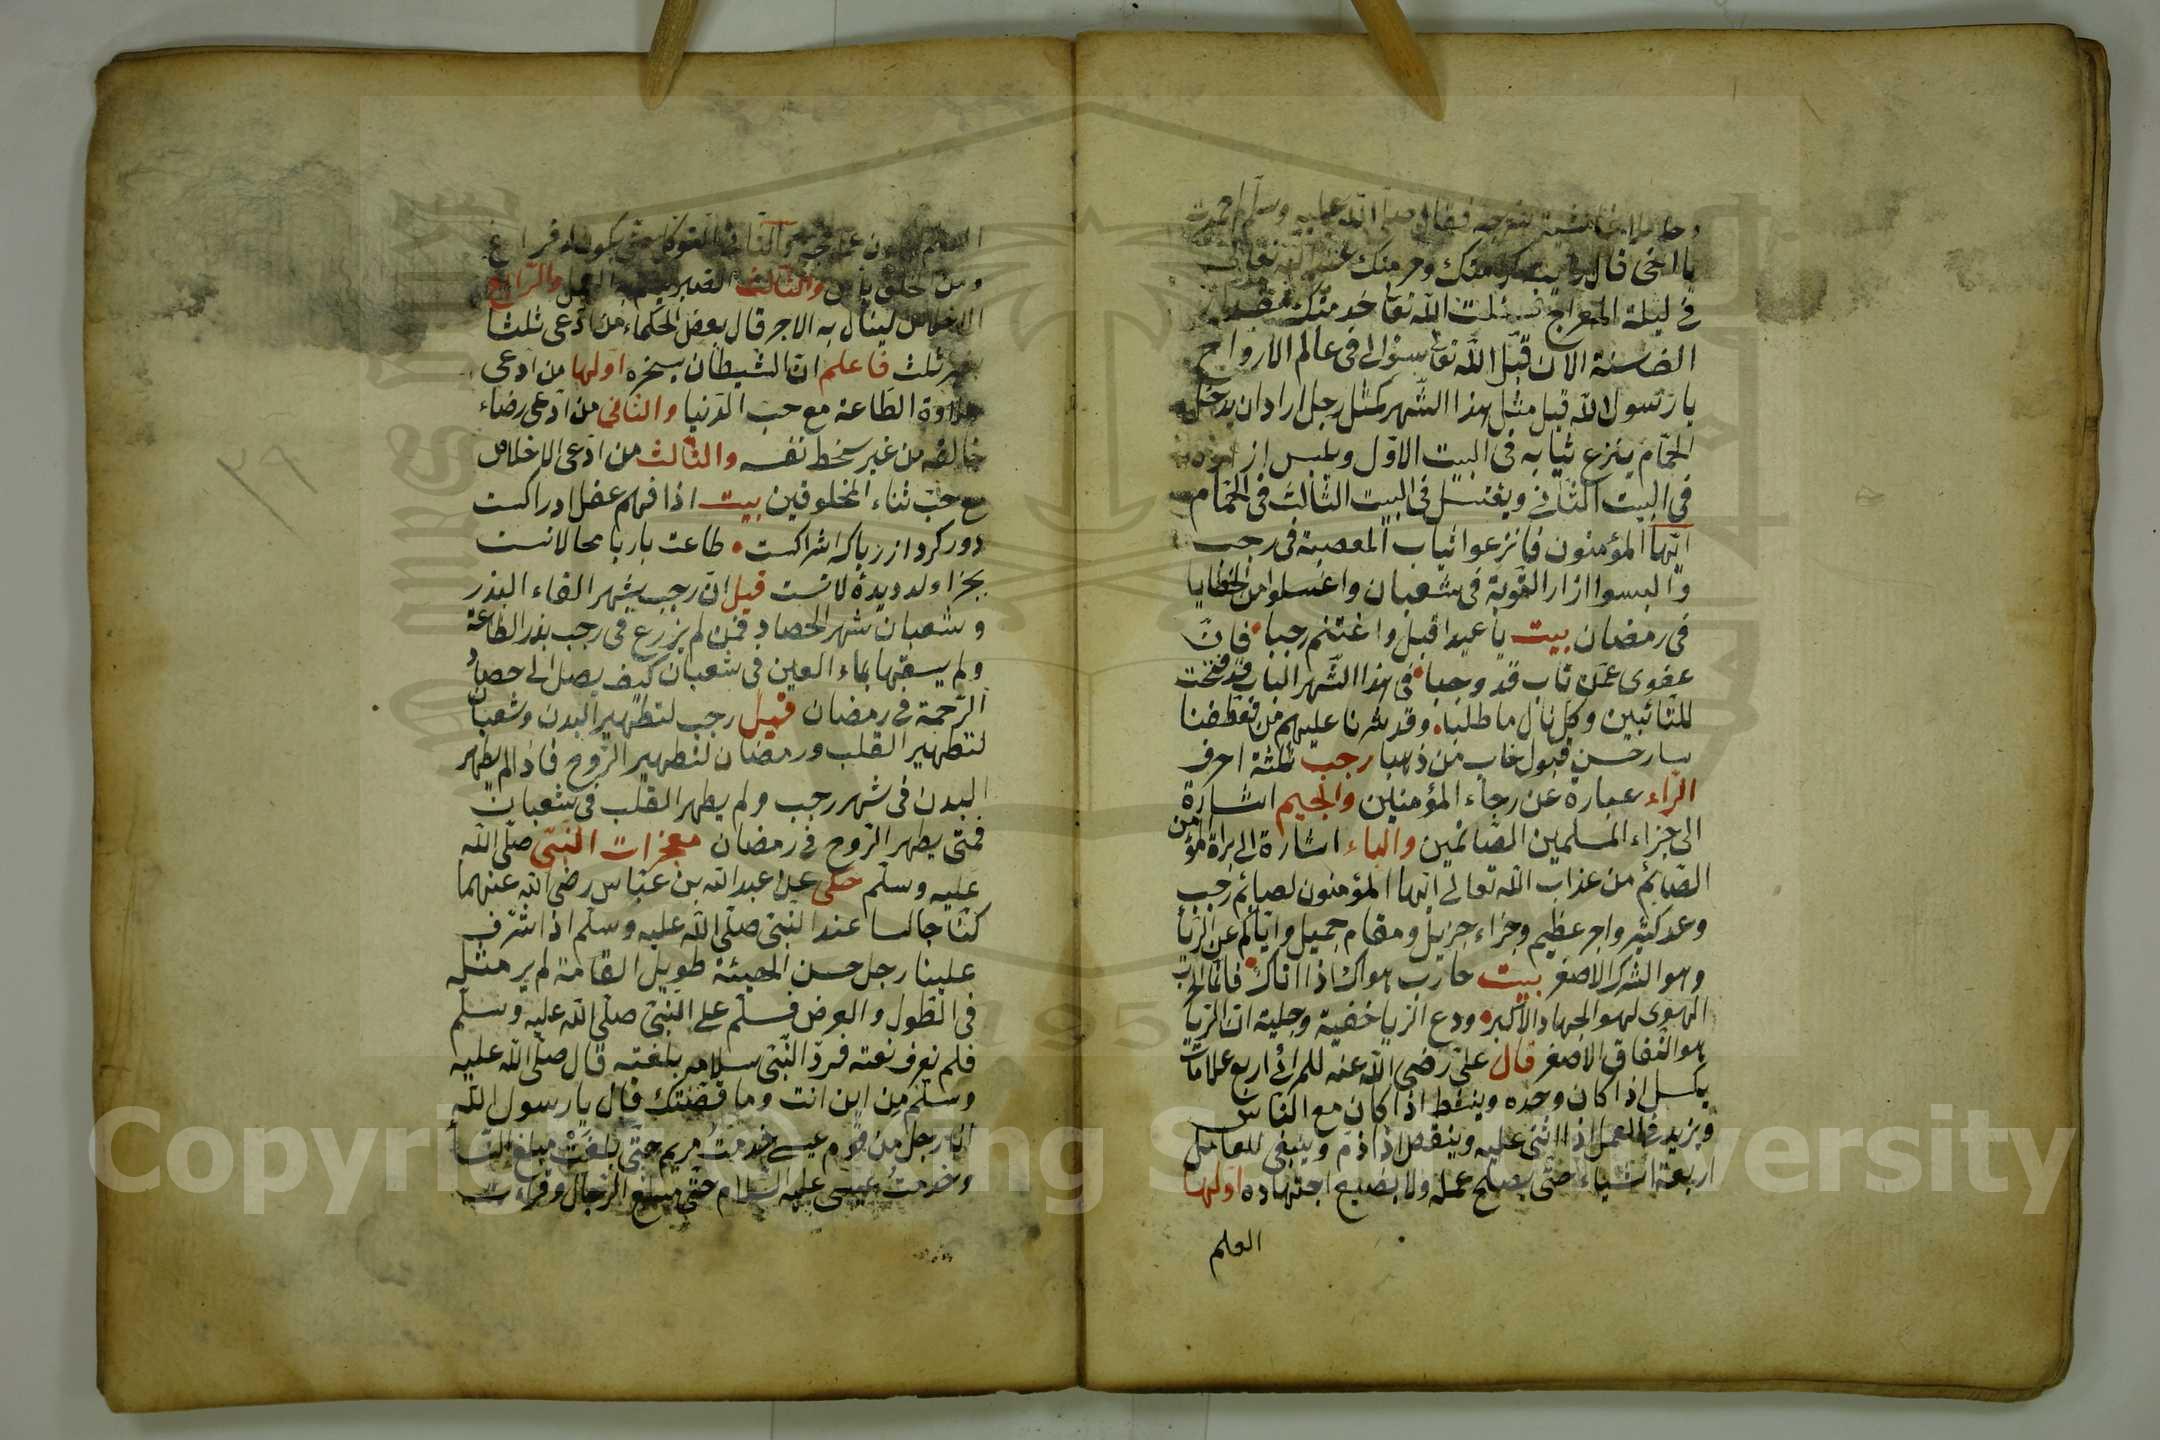 فقال صلى الله عليه وسلم
يا اخى قال رأيت كرمتك وحرمتك عند الله تعالى
فى ليلة المعراج فسئلت الله تعا خدمتك
الآن قبل الله تعالى سؤالى فى عالم الارواح
يا رسول الله قيل مثل هذا الشهر كمثل رجل اراد ان يدخل
الحمام ينزع ثيابه فى البيت الاول ويلبس ازاره
فى البيت الثانى ويغتسل فى البيت الثالث فى الحمام
ايها المؤمنون فانزعوا ثياب المعصية فى رجب
والبسوا ازار التوبة فى شعبان واغسلوا من الخطايا
فى رمضان بيت يا عبد اقبل واغتنم رجبا فان
عفوى عمن تاب قد وجبا فى هذا الشهر الباب قد فتحت
للتائبين وكل نال ما طلبا وقد نشرنا عليهم من تعطفنا
حسن قبول خاب من ذهبا رجب ثلثة احرف
الراء عبارة عن رجاء المؤمنين والجيم اشارة
الى جزاء المسلمين الصائمين والباء اشارة الى براة المؤمن
الصائم من عذاب الله تعالى ايها المؤمنون لصيائم رجب
وعد كثير واجر عظيم وجزاء جزيل ومقام جميل واياكم عن الريا
وهو الشرك الاصغر بيت حارب هواك اذا اتاك فانما حرب
الهوى لهو الجهاد الاكبر ودع الريا خفية وجلية ان الريا
هو النفاق الاصغر قال على رضى الله عنه للمرائى اربع علامات
يكسل اذا كان وحده وينشط اذا كان مع الناس
ويزيد فى العمل اذا اثنى عليه وينقص اذا ذم وينبغى للعامل
اربعة اشياء حتى يصلح عمله ولا يضيع اجتهاده اولها
العلم
والثانى التوكل حتى يكون له فراغ
ومن الخلق يأس والثالث الصبر ليتم به العمل والرابع
الاخلاص لينال به الاجر قال بعض الحكماء من ادعى ثلثا
بغير ثلث فاعلم ان الشيطان يسخره اولها من ادعى
حلاوة الطاعة مع حب الدنيا والثانى من ادعى رضاء
خالقه من غير سخط نفسه والثالث من ادعى الاخلاص
مع حب ثناء المخلوقين بيت اذا فهم عقل ادراكست
دور كرد از رياكه اشراكست طاعت باريا محالاتست
قيل ان رجب شهر القاء البذر
وشعبان شهر الحصاد فمن لم يزرع فى رجب بذر الطاعة
ولم يسقها بماء العين فى شعبان كيف يصل الى حصاد
الرحمة فى رمضان قيل رجب لتطهير البدن وشعبان
لتطهير القلب ورمضان لتطهير الروح فاذا لم يطهر
البدن فى شهر رجب ولم يطهر القلب فى شعبان
فمتى يطهر الروح فى رمضان معجزات النبى صلى الله
عليه وسلم حكى عن عبد الله بن عباس رضى الله عنهما
كنا جالسا عند النبى صلى الله عليه وسلم اذا شرف
علينا رجل حسن الهيئة طويل القامة لم ير مثله
فى الطول والعرض فسلم على النبى صلى الله عليه وسلم
فلم نعرف نعته فرد النبى سلامه بلغته قال صلى الله عليه
وسلم من اين انت وما قصتك قال يا رسول الله
انا رجل من قوم عيسى خدمت مريم حتى بلغت مبلغ النساء
وخدمت عيسى عليه السلام حتى مبلغ الرجال وقرأت
٢٩
Copyright © King Saud University